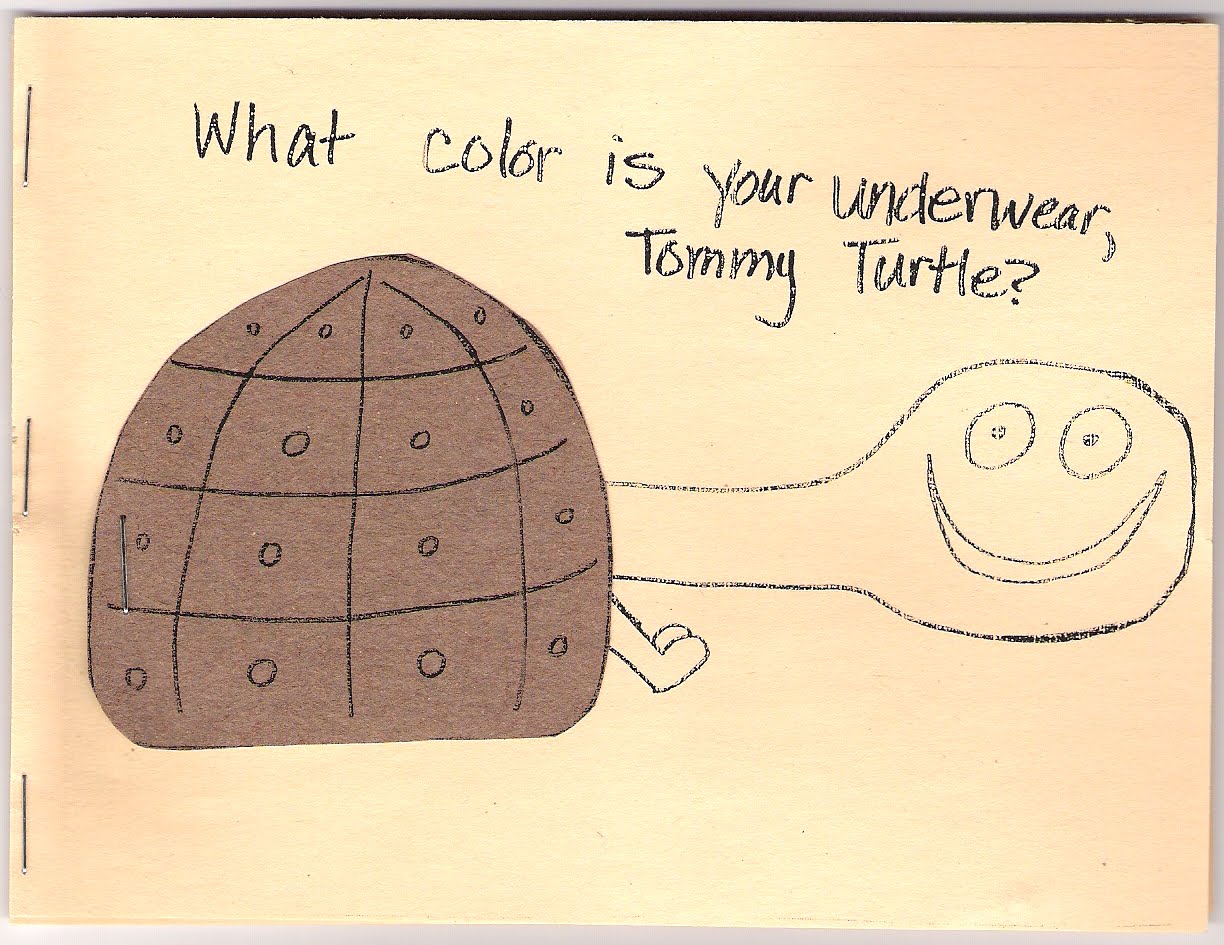 What color is your underwear,
Tommy Turtle?